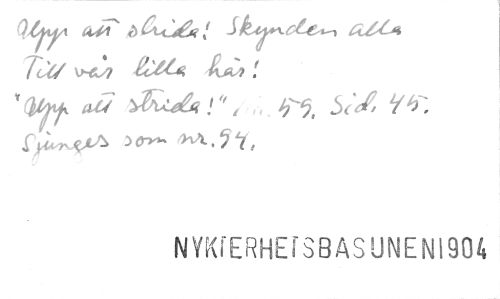 Upp att strida! Skynden alla
Till vår lilla här!
"Upp att strida!" Nr. 59. Sid. 45.
Sjunges som nr. 94.
NYKTERHETSBASUNEN 1904